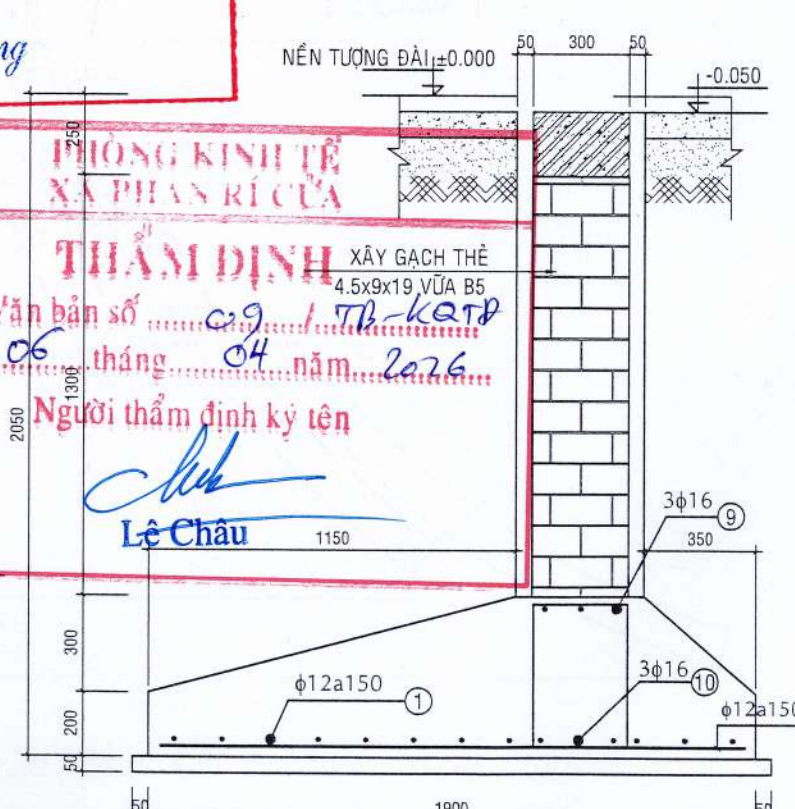 ng
NỀN TƯỢNG ĐÀI ±0.000
50 300 50
-0.050
250
PHÒNG KINH TẾ
XÃ PHAN RÍ CỬA
THẨM ĐỊNH
XÂY GẠCH THẺ
4.5x9x19 VỮA B5
Văn bản số 09 / TB-KQTĐ
06 tháng 04 năm 2026
1300
2050
Người thẩm định ký tên
Lê Châu
1150
3ϕ16 9
350
300
ϕ12a150 1
3ϕ16 10
ϕ12a150
200
50
50 1900 50